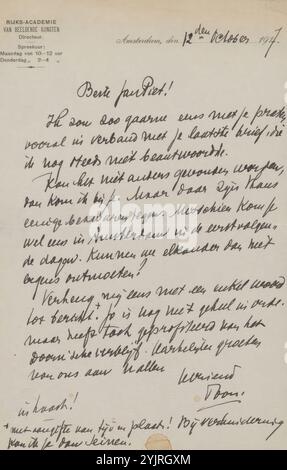 RIJKS-ACADEMIE
VAN BEELDENDE KUNSTEN
Directeur.
Spreekuur:
Maandag van 10-12 uur
Donderdag „ 2-4 „
Amsterdam, den 12den October 191
Beste Jan Piet!
Ik zou zoo gaarne eens met je praten
vooral in verband met je laatste brief, die
ik nog steeds niet beantwoordde.
Kan het niet anders gevonden worden,
dan kom ik bij je. Maar daar zijn thans
eenige bezwaren tegen. Misschien kom je
wel eens in Amsterdam in de eerstvolgen-
de dagen. Kunnen we elkander dan niet
ergens ontmoeten?
Verheug mij eens met een enkel woord
tot bericht. Jo is nog niet geheel in orde.
maar heeft toch geprofiteerd van het
Doorn'sche verblijf. Hartelijke groeten
van ons aan U allen
Vriend
Toon.
in haast!
met van tijd in plaats! Bij verhindering
kan ik je dan seinen.
alamy
Image ID: 2YJRGXM
www.alamy.com